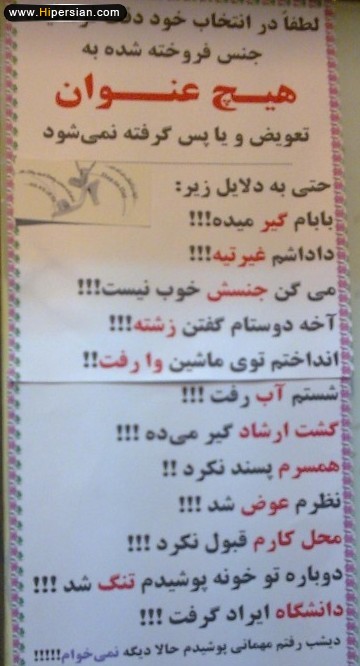 www.Hipersian.com
لطفاً در انتخاب خود دقت
جنس فروخته شده به
هیچ عنوان
تعویض و یا پس گرفته نمی‌شود
حتی به دلایل زیر:
بابام گیر میده!!!
داداشم غیرتیه!!!
می گن جنسش خوب نیست!!!
آخه دوستام گفتن زشته!!!
انداختم توی ماشین وا رفت!!
شستم آب رفت !!!
گشت ارشاد گیر می‌ده !!!
همسرم پسند نکرد !!
نظرم عوض شد !!!
محل کارم قبول نکرد !!!
دوباره تو خونه پوشیدم تنگ شد !!!
دانشگاه ایراد گرفت !!!
دیشب رفتم مهمانی پوشیدم حالا دیگه نمی‌خوام!!!!!!